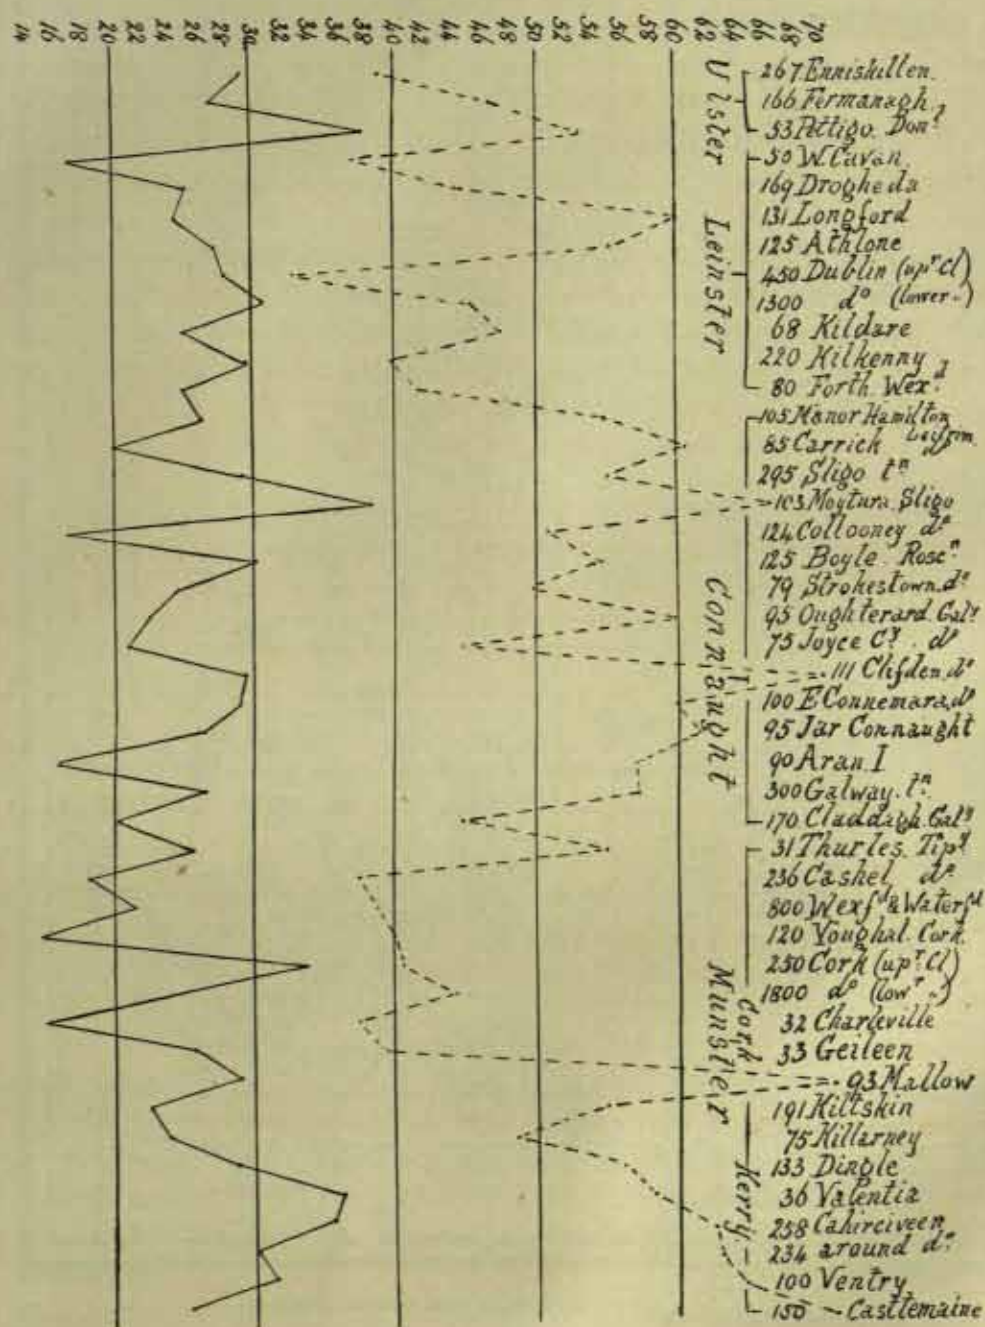 14 16 18 20 22 24 26 28 30 32 34 36 38 40 42 44 46 48 50 52 54 56 58 60 62 64 66 68 70
Ulster
267 Enniskillen
166 Fermanagh
53 Pettigo Don.l
Leinster
50 W. Cavan
169 Drogheda
131 Longford
125 Athlone
450 Dublin (upr Cl)
1300 do (lower ")
68 Kildare
220 Kilkenny
80 Forth Wex.d
Connaught
105 Manor Hamilton Leitrim
85 Carrick do
295 Sligo tn
103 Moytura Sligo
124 Collooney do
125 Boyle Roscn
79 Strokestown do
95 Oughterard Galy
75 Joyce Cy. do
111 Clifden do
100 E Connemara do
95 Jar Connaught
90 Aran I
300 Galway tn.
170 Claddagh Galy
Munster
31 Thurles Tipy
236 Cashel do
800 Wexfd & Waterfd
Cork
120 Youghal Cork
250 Cork (upr Cl)
1800 do (lowr ")
32 Charleville
33 Geileen
93 Mallow
Kerry
191 Kiltskin
75 Killarney
133 Dingle
36 Valentia
258 Cahirciveen
234 around do
100 Ventry
150 Castlemaine